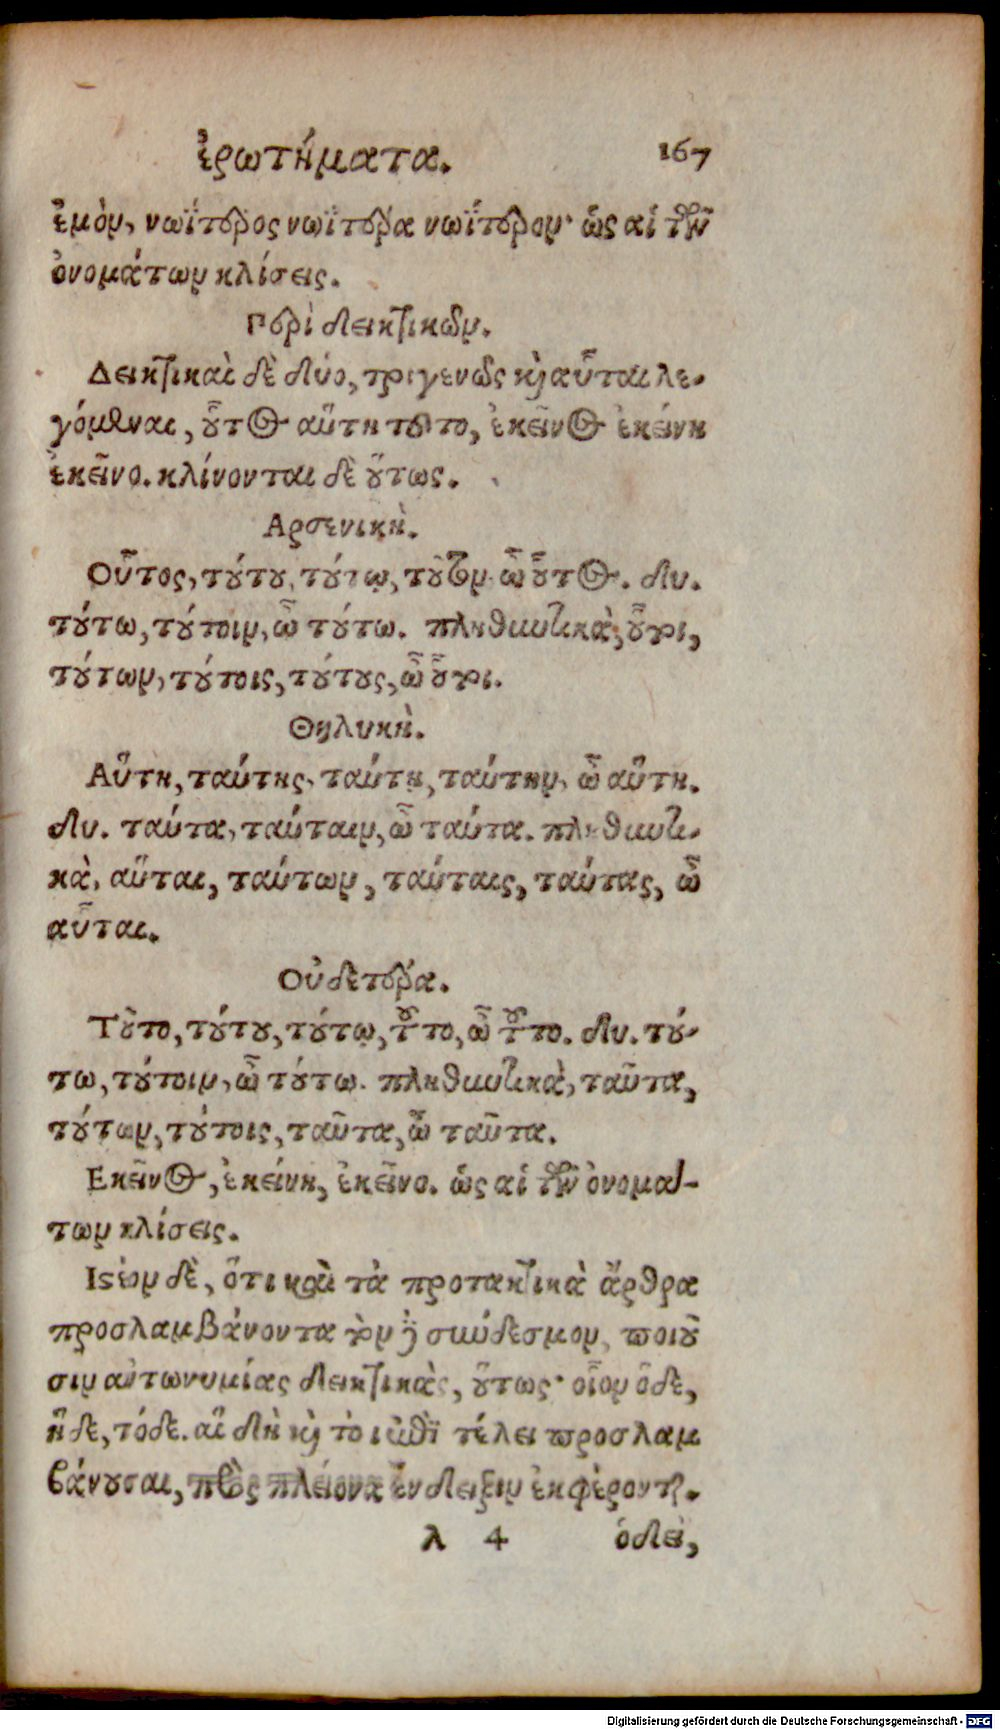 ἐρωτήματα. 167
ἐμὸν, νωΐτερος νωϊτέρα νωΐτερον· ὡς αἱ τῶν
ὀνομάτων κλίσεις.
Περὶ δεικτικῶν.
Δεικτικαὶ δὲ δύο, τριγενῶς καὶ αὗται λε-
γόμεναι, οὗτος αὕτη τοῦτο, ἐκεῖνος ἐκείνη
ἐκεῖνο. κλίνονται δὲ οὕτως.
Αρσενικὴ.
Οὗτος, τούτου, τούτῳ, τοῦτον, ὦ οὗτος. δυ.
τούτω, τούτοιν, ὦ τούτω. πληθυντικὰ, οὗτοι,
τούτων, τούτοις, τούτους, ὦ οὗτοι.
Θηλυκὴ.
Αὕτη, ταύτης, ταύτῃ, ταύτην, ὦ αὕτη.
δυ. ταύτα, ταύταιν, ὦ ταύτα. πληθυντι-
κὰ, αὗται, ταύτων, ταύταις, ταύτας, ὦ
αὗται.
Οὐδετέρα.
Τοῦτο, τούτου, τούτῳ, τοῦτο, ὦ τοῦτο. δυ. τού-
τω, τούτοιν, ὦ τούτω. πληθυντικὰ, ταῦτα,
τούτων, τούτοις, ταῦτα, ὦ ταῦτα.
Εκεῖνος, ἐκείνη, ἐκεῖνο. ὡς αἱ τῶν ὀνομά-
των κλίσεις.
Ιστέον δὲ, ὅτι καὶ τὰ προτακτικὰ ἄρθρα
προσλαμβάνοντα τὸν δὲ σύνδεσμον, ποιοῦ
σιν ἀντωνυμίας δεικτικὰς, οὕτως· οἷον ὅδε,
ἥδε, τόδε. αἳ δὴ καὶ τὸ ι ἐπὶ τέλει προσλαμ
βάνουσαι, πρὸς πλείονα ἔνδειξιν ἐκφέρονται.
λ 4 ὁδεὶ,